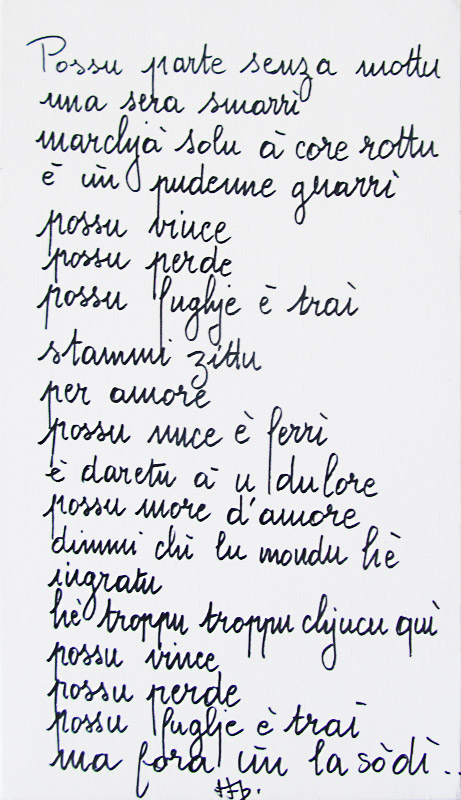 Possu parte senza mottu
una sera smarrì
marchjà solu à core rottu
è ùn pudenne guarrì
possu vince
possu perde
possu fughje è traì
stammi zittu
per amore
possu nuce è ferrì
è daretu à u dulore
possu more d'amore
dimmi chì lu mondu hè
ingratu
hè troppu troppu chjucu quì
possu vince
possu perde
possu fughje è traì
ma fora ùn la sò dì..